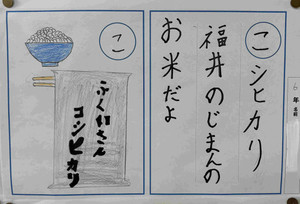 こ
コシヒカリ
福井のじまんの
お米だよ
こ
ふくいさん
コシヒカリ
年
名前